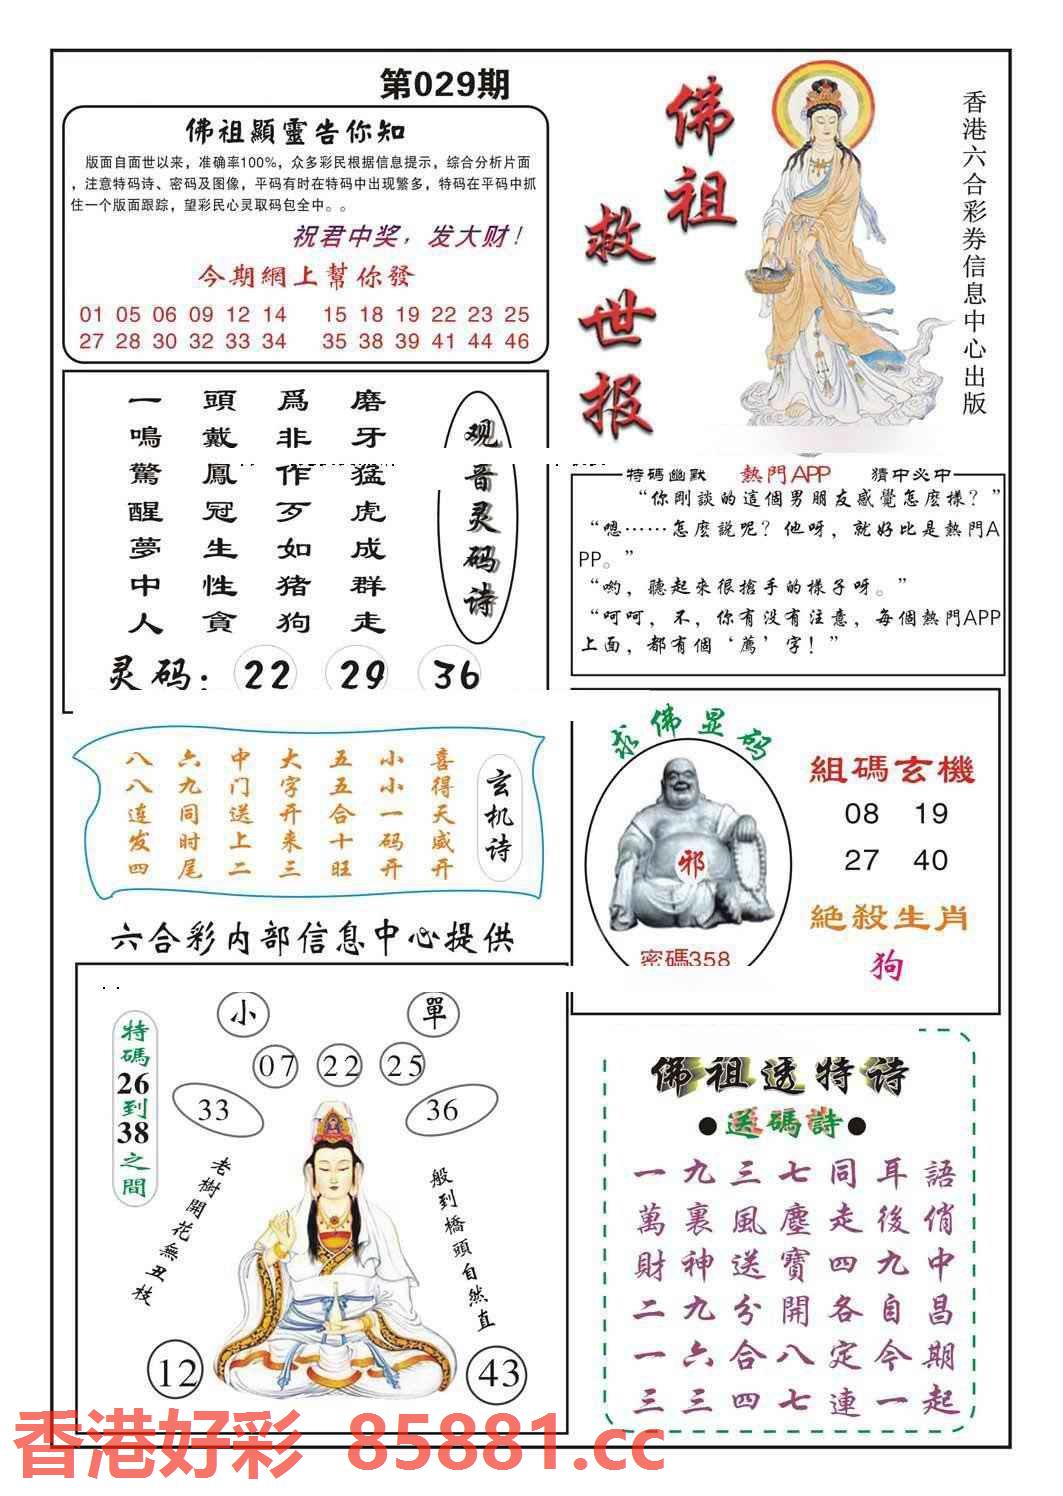 第029期
佛祖顯靈告你知
版面自面世以来，准确率100%，众多彩民根据信息提示，综合分析片面
，注意特码诗、密码及图像，平码有时在特码中出现繁多，特码在平码中抓
住一个版面跟踪，望彩民心灵取码包全中。。
祝君中奖，发大财！
今期網上幫你發
01 05 06 09 12 14 15 18 19 22 23 25
27 28 30 32 33 34 35 38 39 41 44 46
佛祖
救世报
香港六合彩券信息中心出版
观音灵码诗
磨牙猛虎成群走
爲非作歹如猪狗
頭戴鳳冠生性貪
一鳴驚醒夢中人
灵码：22 29 36
特碼幽默 熱門APP 猜中必中
“你剛談的這個男朋友感覺怎麼樣？”
“嗯……怎麼說呢？他呀，就好比是熱門A
PP。”
“喲，聽起來很搶手的樣子呀。”
“呵呵，不，你有没有注意，每個熱門APP
上面，都有個‘薦’字！”
玄机诗
喜得天威开
小小一码开
五五合十旺
大字开来三
中门送上二
六九同时尾
八八连发四
求佛显码
邪
密碼358
組碼玄機
08 19
27 40
絕殺生肖
狗
六合彩内部信息中心提供
小 單
07 22 25
33 36
特碼26到38之間
老樹開花無丑枝
般到橋頭自然直
12 43
佛祖透特诗
●送碼詩●
一九三七同耳語
萬裏風塵走後俏
財神送寶四九中
二九分開各自昌
一六合八定今期
三三四七連一起
香港好彩 85881.cc